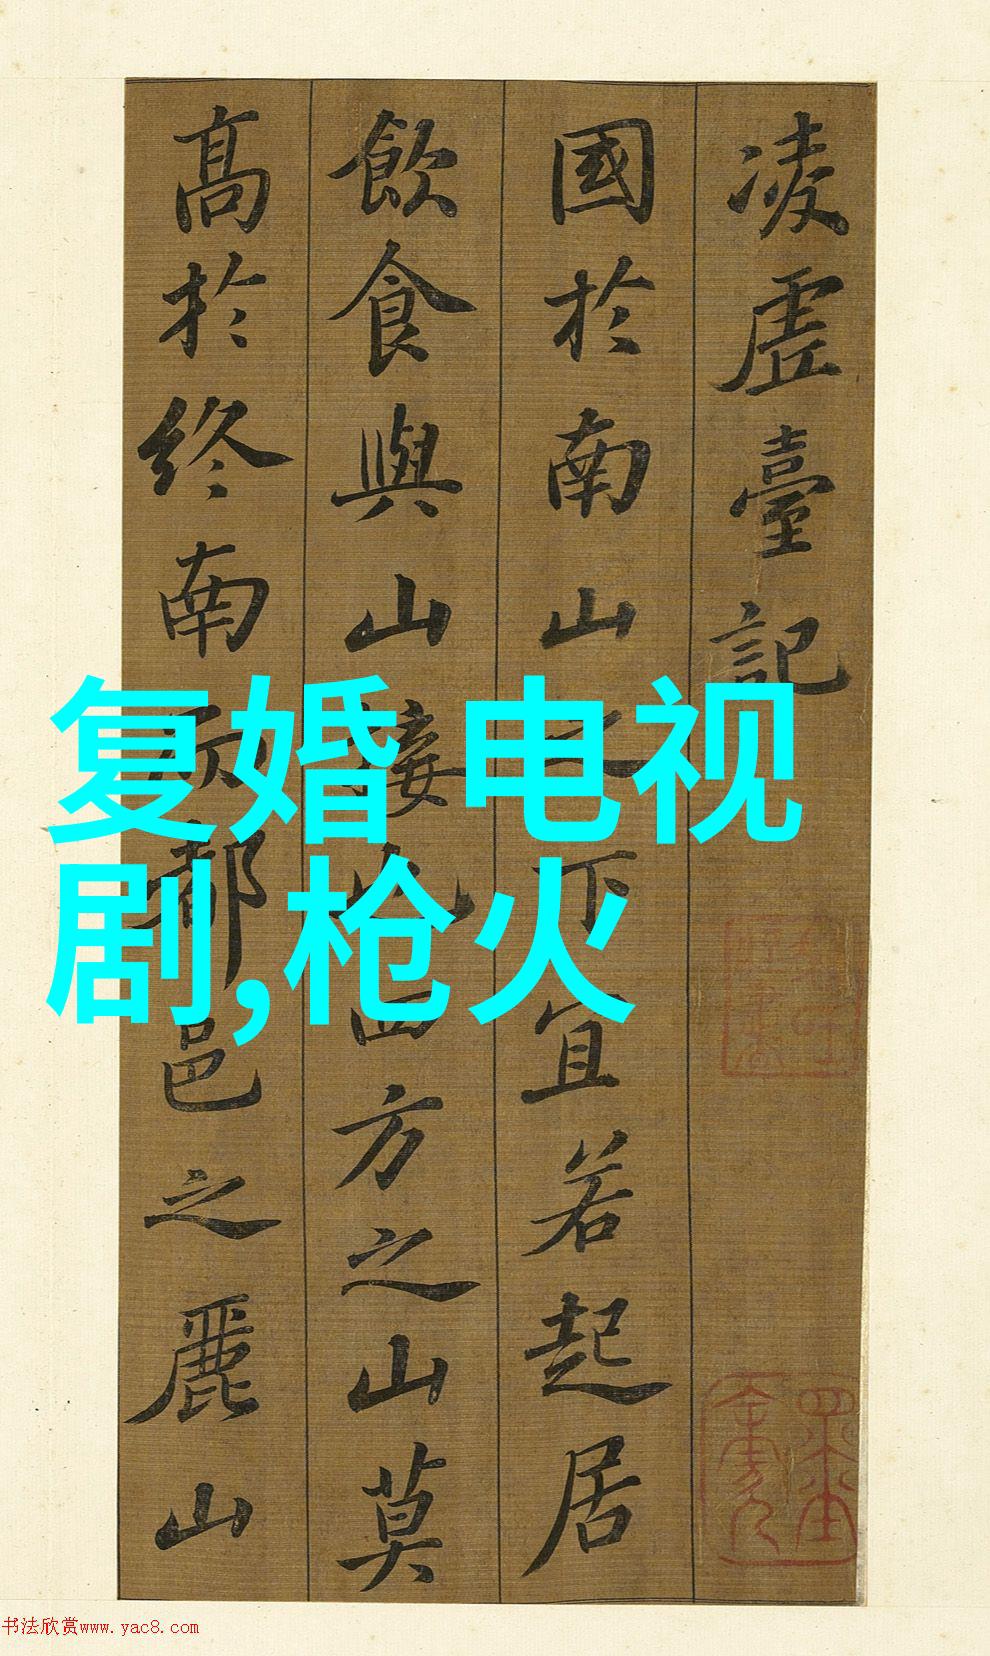 凌虛臺記
國於南山之下宜若起居
飲食與山接也四方之山莫
高於終南而都邑之麗山
复婚 电视
剧,枪火
书法欣赏www.yac8.com